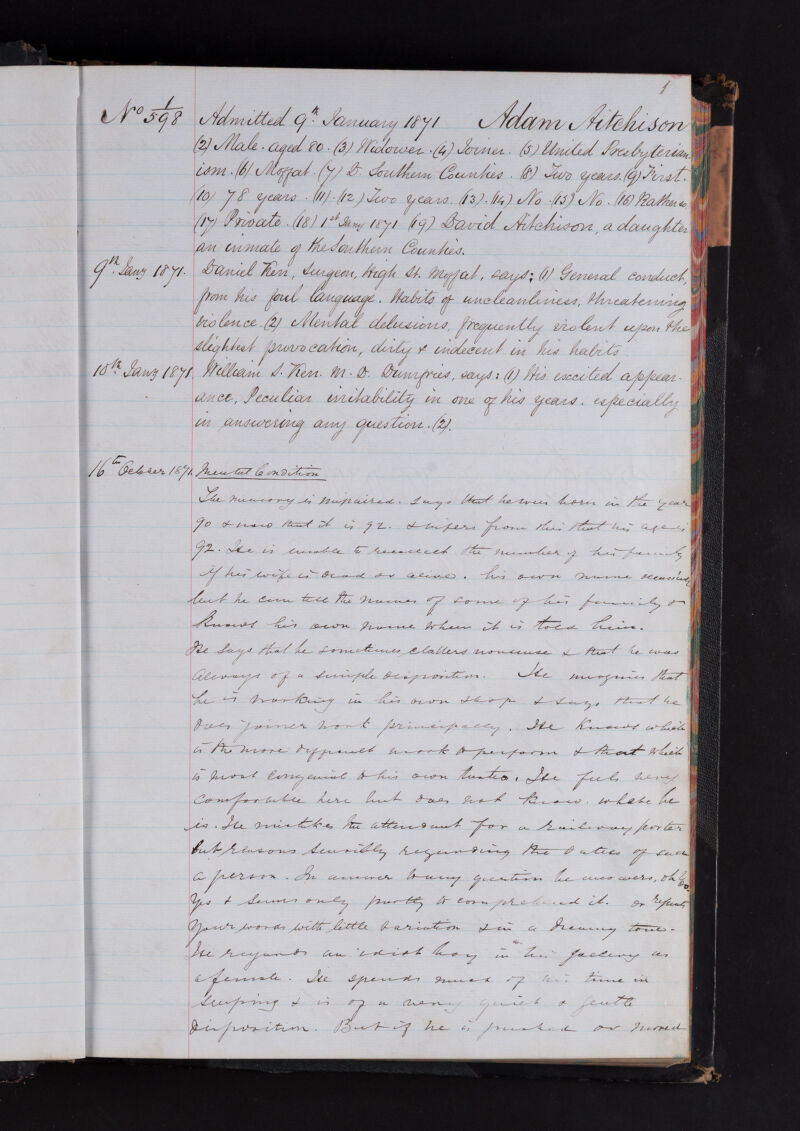 1
No 1/598 Admitted 9th January 1871 Adam Aitchison
(2) Male. aged 80. (3) Widower. (4) Joiner. (5) United Presbyterian
ism. (6) Moffat. (7) D. Southern Counties. (8) Two years. (9) First.
(10) 78 years. (11). (12) Two years. (13). (14) No. (15) No. (16) Rather so
(17) Private. (18) 1st Jany 1871 (19) David Aitchison, a daughter
an inmate of the Southern Counties.
9th Jany 1871. Daniel Kerr, Surgeon, High St. Moffat, says: (1) General conduct,
from his foul language. Habits of uncleanliness, threatening
violence. (2) Mental delusions, frequently violent upon the
slightest provocation, dirty & indecent in his habits.
10th Jany 1871 William S. Kerr M. D. Dumfries, says: (1) His excited appear-
ance, Peculiar irritability in one of his years, especially
in answering any question. (2).
16th October 1871. Mental Condition
The memory is impaired. says that he was born in the year
90 & now that it is 92. & infers from this that his age is
92. He is unable to recollect the number of his family
if his wife is dead or alive. his own name
but he can tell the names of some of his family or
knows his own name when it is told him.
He says that he sometimes clatters nonsense & that he was
always of a simple disposition. He imagines that
he is working in his own shop & says that he
does joiner work principally. He knows which
is the more difficult work to perform & that which
is most congenial to his own tastes. He feels very
comfortable here but does not know where he
is. He mistakes the attendant for a railway porter
but reasons sensibly regarding the duties of such
a person. In answer to any question he answers, oh
yes & seems only partly to comprehend it. or repeats
your words with little variation & in a dreamy tone.
He regards an idiot boy in the gallery as
a female. He spends much of his time in
sleeping & is of a very quiet & gentle
disposition. But if he is pushed or moved